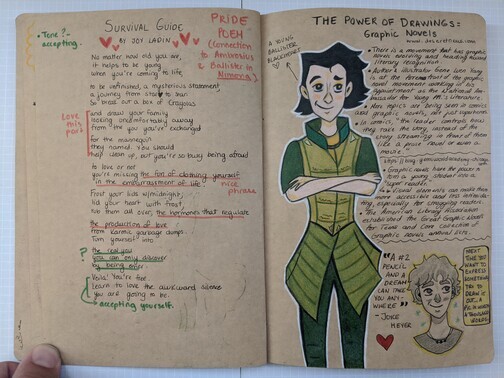 • Tone ?-
accepting.
SURVIVAL GUIDE
BY JOY LADIN
PRIDE
POEM
(connection
to Ambrosius
& Ballister in
Nimona)
No matter how old you are,
it helps to be young
when you're coming to life
to be unfinished, a mysterious statement
a journey from star to star
So break out a box of Crayolas
and draw your family
looking uncomfortably away
from the you you've exchanged
Love this
part
for the mannequin
they named. You should
help, but you're so busy being afraid
to love or not
you're missing the fun of clothing yourself
in the embarrassment of life
nice
phrase
Frost your lids w/midnight;
lid your heart with frost;
rub them all over, the hormones that regulate
the production of love
from karmic garbage dumps.
Turn yourself into
?
the real you
you can only discover
by being other.
Voila! You're free
Learn to love the awkward silence
you are going to be.
accepting yourself.
THE POWER OF DRAWINGS:
Graphic Novels
A YOUNG
BALLISTER
BLACKHEART
• There is a movement that has graphic
novels evolving and heading toward
literary recognition.
• Author & illustrator Gene Luen Yang
is at the forefront of the graphic
novel movement
appointment as the National Am-
bassador for Young Ppl's literature.
• More topics are being seen in comics
and graphic novels, not just superheroes
• In comics, "the reader controls how
they take the story, instead of the
story streaming in front of them
like a prose novel or even a
movie."
• Graphic novels have the power to
turn a young student into a
"super reader."
• Visual elements can make them
more accessible and less intimida-
ting, especially for struggling readers.
• The American Library Association
established the Great Graphic Novels
for Teens and Core collection of
graphic novels annual lists.
"A #2
PENCIL
AND A
DREAM
CAN TAKE
YOU ANY-
WHERE"
- JOYCE
MEYER
NEXT
TIME YOU
WANT TO
EXPRESS
SOMETHING
TRY TO
DRAW IT
OUT. A
PIC IS WORTH
A THOUSAND
WORDS.